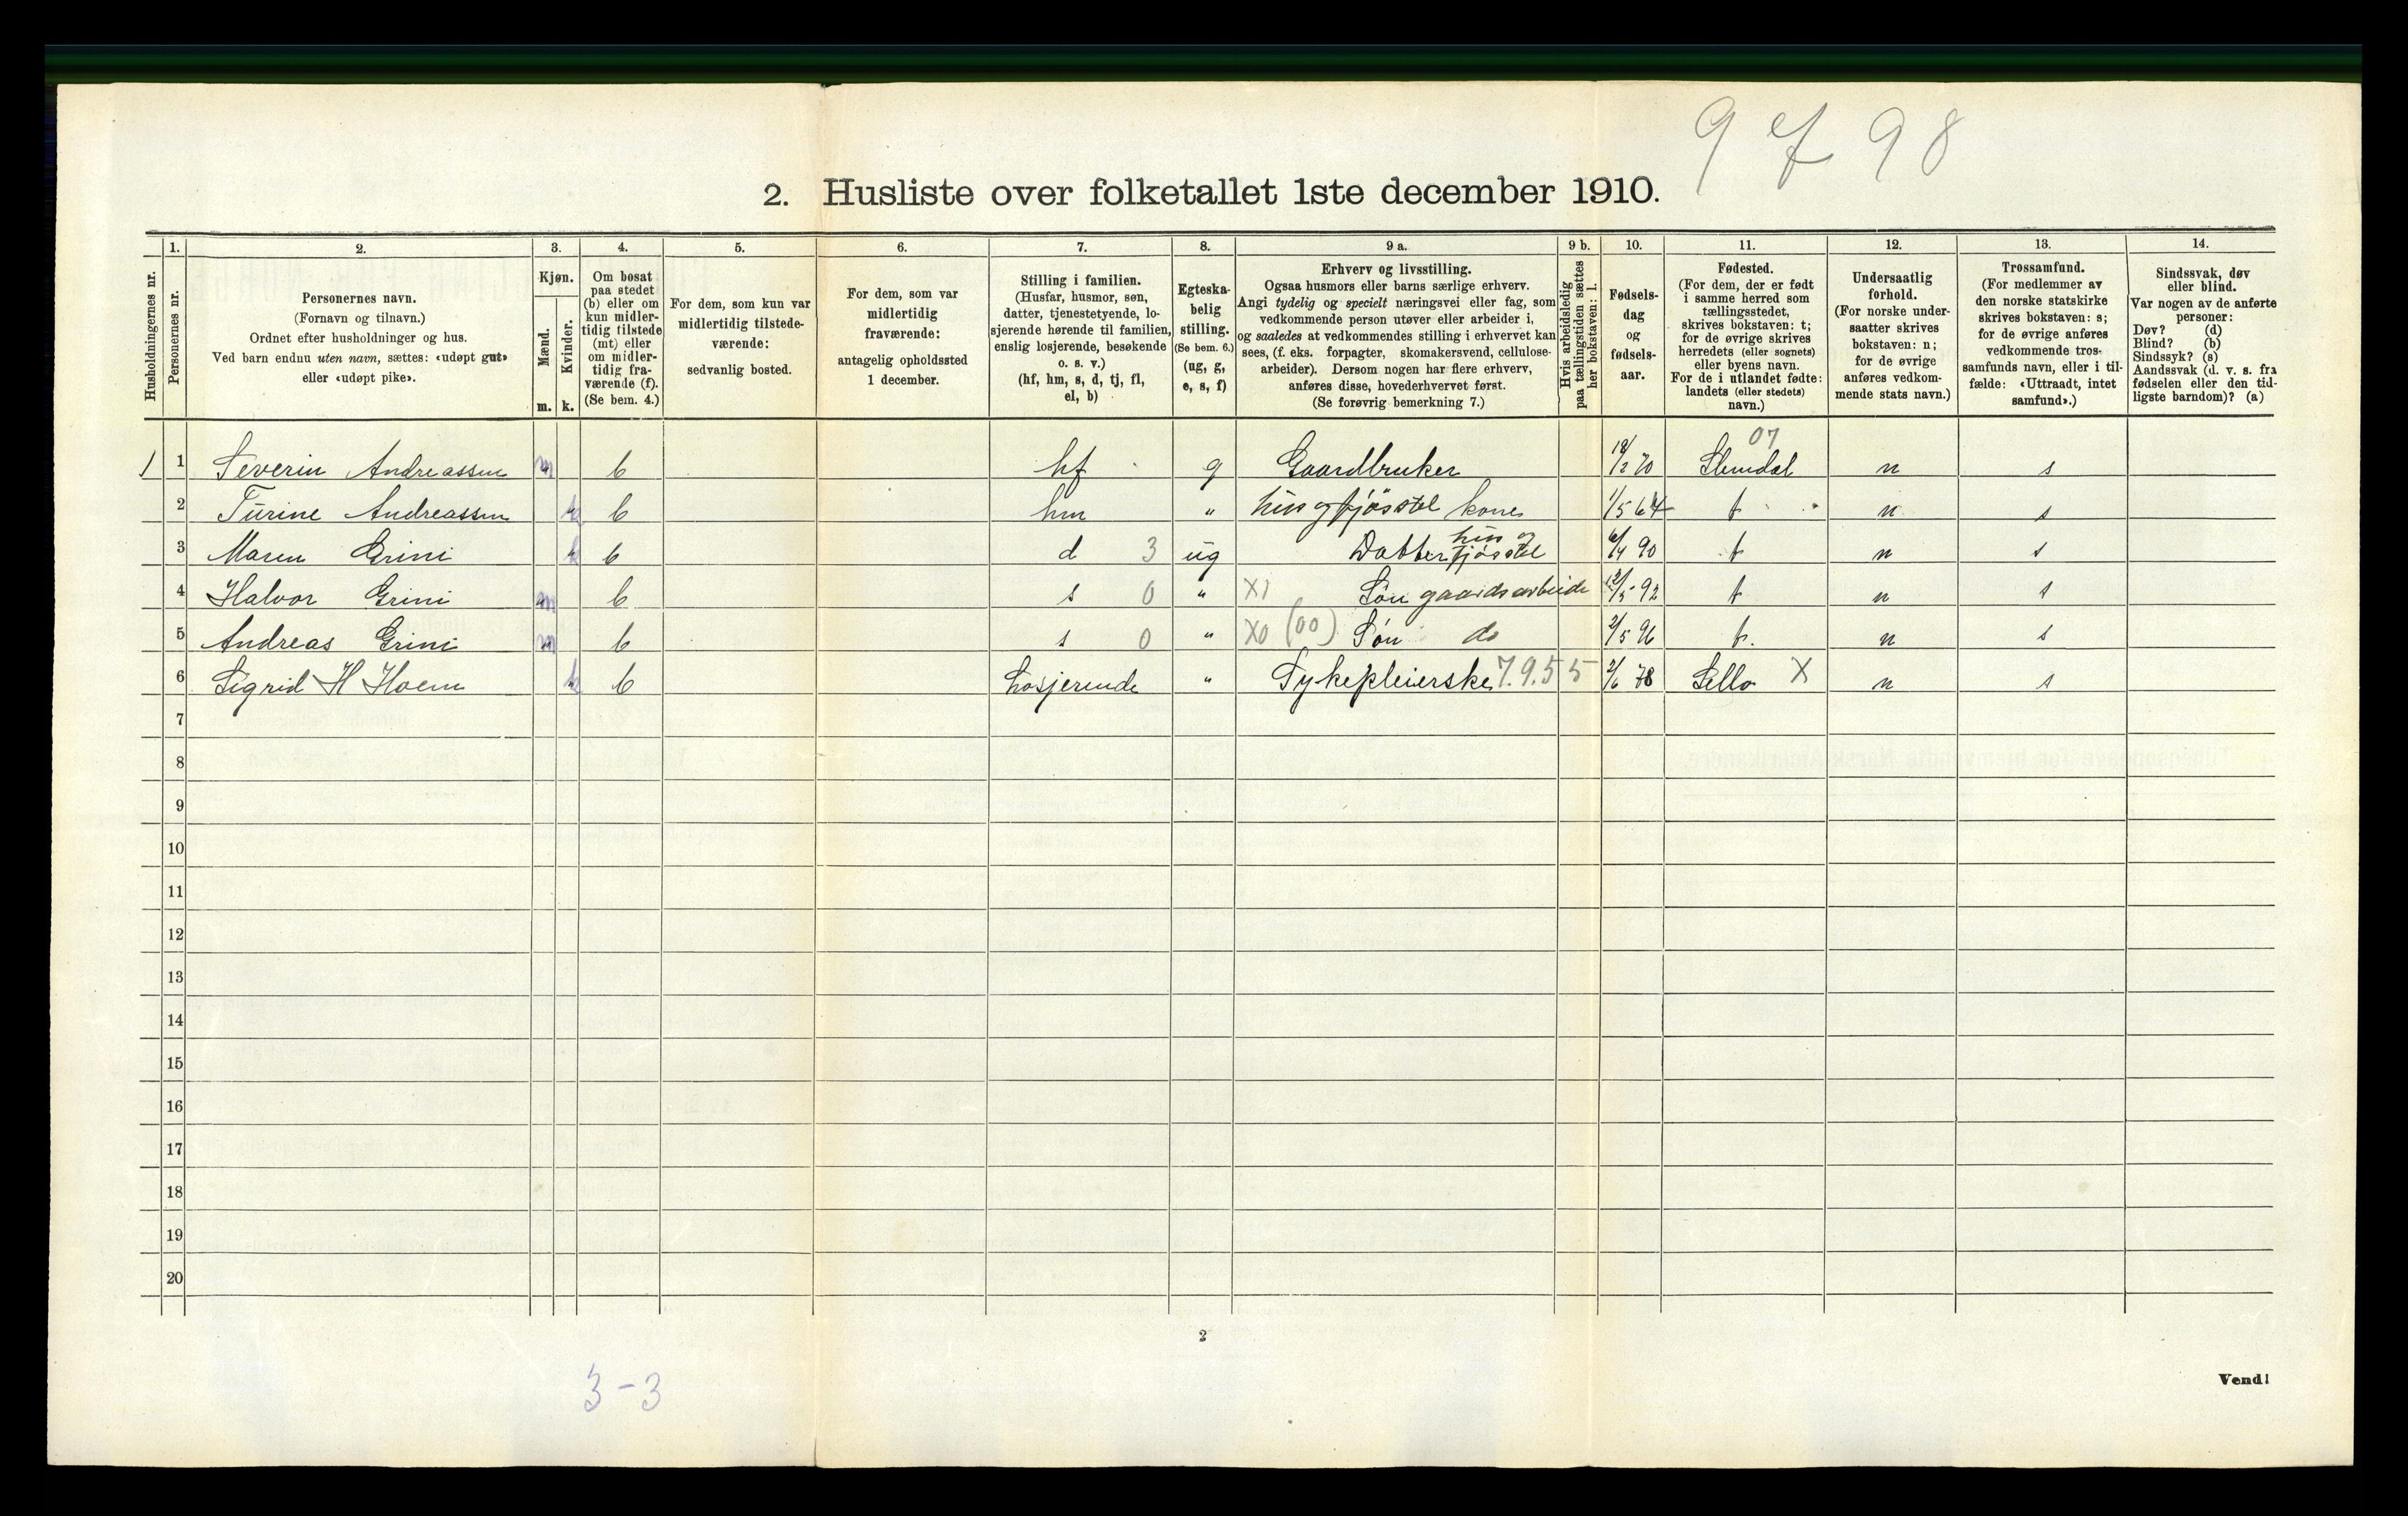 9 98
2. Husliste over folketallet 1ste december 1910.
Husholdningernes nr.
1.
Personernes nr.
2.
Personernes navn.
(Fornavn og tilnavn.)
Ordnet efter husholdninger og hus.
Ved barn endnu uten navn, sættes: «udøpt gut»
eller «udøpt pike».
3.
Kjøn.
Mænd.
Kvinder.
m. k.
4.
Om bosat
paa stedet
(b) eller om
kun midler-
tidig tilstede
(mt) eller
om midler-
tidig fra-
værende (f).
(Se bem. 4.)
5.
For dem, som kun var
midlertidig tilstede-
værende:
sedvanlig bosted.
6.
For dem, som var
midlertidig
fraværende:
antagelig opholdssted
1 december.
7.
Stilling i familien.
(Husfar, husmor, søn,
datter, tjenestetyende, lo-
sjerende hørende til familien,
enslig losjerende, besøkende
o. s. v.)
(hf, hm, s, d, tj, fl,
el, b)
8.
Egteska-
belig
stilling.
(Se bem. 6.)
(ug, g,
e, s, f)
9 a.
Erhverv og livsstilling.
Ogsaa husmors eller barns særlige erhverv.
Angi tydelig og specielt næringsvei eller fag, som
vedkommende person utøver eller arbeider i,
og saaledes at vedkommendes stilling i erhvervet kan
sees, (f. eks. forpagter, skomakersvend, cellulose-
arbeider). Dersom nogen har flere erhverv,
anføres disse, hovederhvervet først.
(Se forøvrig bemerkning 7.)
9 b.
Hvis arbeidsledig
paa tællingstiden sættes
her bokstaven: l.
10.
Fødsels-
dag
og
fødsels-
aar.
11.
Fødested.
(For dem, der er født
i samme herred som
tællingsstedet,
skrives bokstaven: t;
for de øvrige skrives
herredets (eller sognets)
eller byens navn.
For de i utlandet fødte:
landets (eller stedets)
navn.)
12.
Undersaatlig
forhold.
(For norske under-
saatter skrives
bokstaven: n;
for de øvrige
anføres vedkom-
mende stats navn.)
13.
Trossamfund.
(For medlemmer av
den norske statskirke
skrives bokstaven: s;
for de øvrige anføres
vedkommende tros-
samfunds navn, eller i til-
fælde: «Uttraadt, intet
samfund».)
14.
Sindssvak, døv
eller blind.
Var nogen av de anførte
personer:
Døv? (d)
Blind? (b)
Sindssyk? (s)
Aandssvak (d. v. s. fra
fødselen eller den tid-
ligste barndom)? (a)
07
1 1 Severin Andreassen m b hf g Gaardbruker 18/2 70 n s
2 Turine Andreassen k b hm " hus og fjøsstel kone 1/5 64 t n s
3 Maren Grini k b d 3 ug Datter hus og fjøsstel 6/4 90 t n s
4 Halvor Grini m b s 0 " X1 Søn gaardsarbeide 12/5 92 t n s
5 Andreas Grini m b s 0 " X0 (00) Søn do 2/5 96 t. n s
6 Sigrid H Hoem k b Losjerende " Sykepleierske 7.9.5 5 2/6 78 X n s
7
8
9
10
11
12
13
14
15
16
17
18
19
20
2
3-3
Vend!